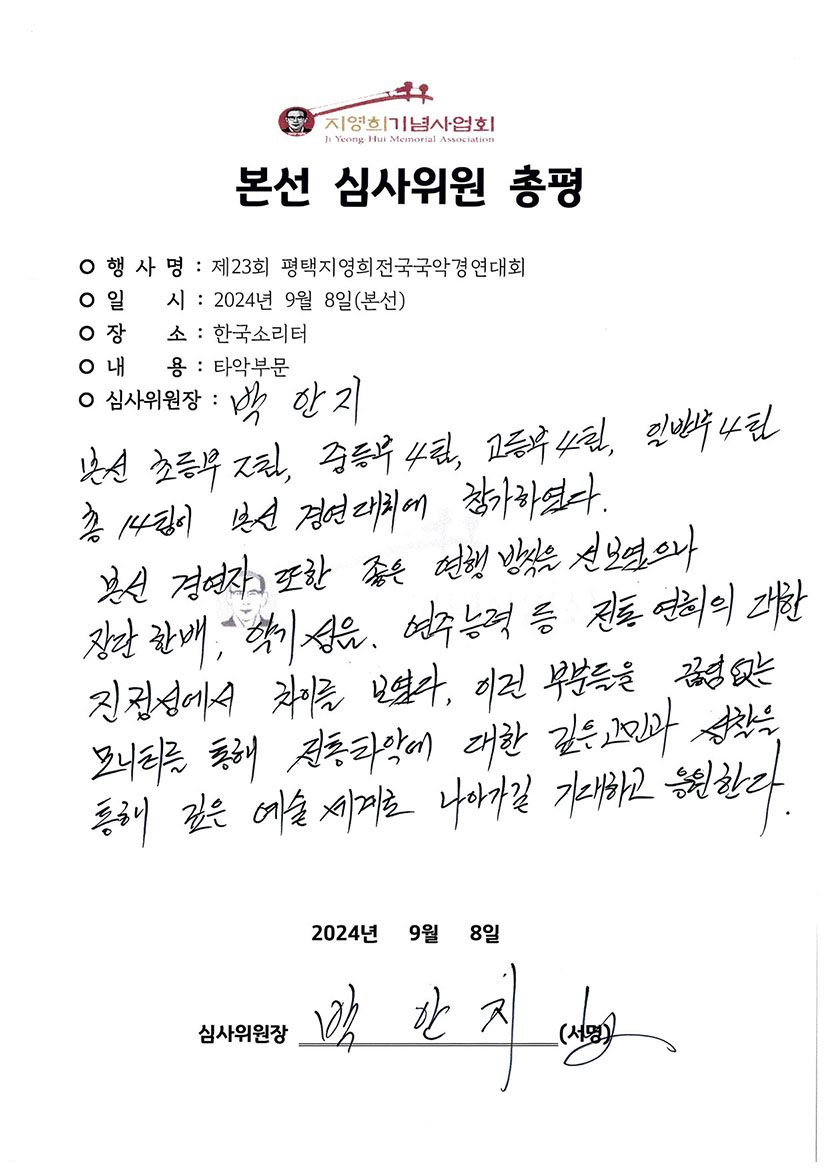 지영희기념사업회
Ji Yeong-Hui Memorial Association
본선 심사위원 총평
행 사 명 : 제23회 평택지영희전국국악경연대회
일 시 : 2024년 9월 8일(본선)
장 소 : 한국소리터
내 용 : 타악부문
심사위원장 : 백 안 지
본선 초등부 2팀, 중등부 4팀, 고등부 4팀, 일반부 4팀
총 14팀이 본선 경연대회에 참가하였다.
본선 경연자 또한 좋은 연행 방식을 선보였으나
장단 한배, 악기 성음. 연주능력 등 전통연희의 대한
진정성에서 차이를 보였다. 이런 부분들을 끊임없는
모니터를 통해 전통타악에 대한 깊은고민과 성찰을
통해 깊은 예술 세계로 나아가길 기대하고 응원한다.
2024년 9월 8일
심사위원장 백 안 지 (서명)